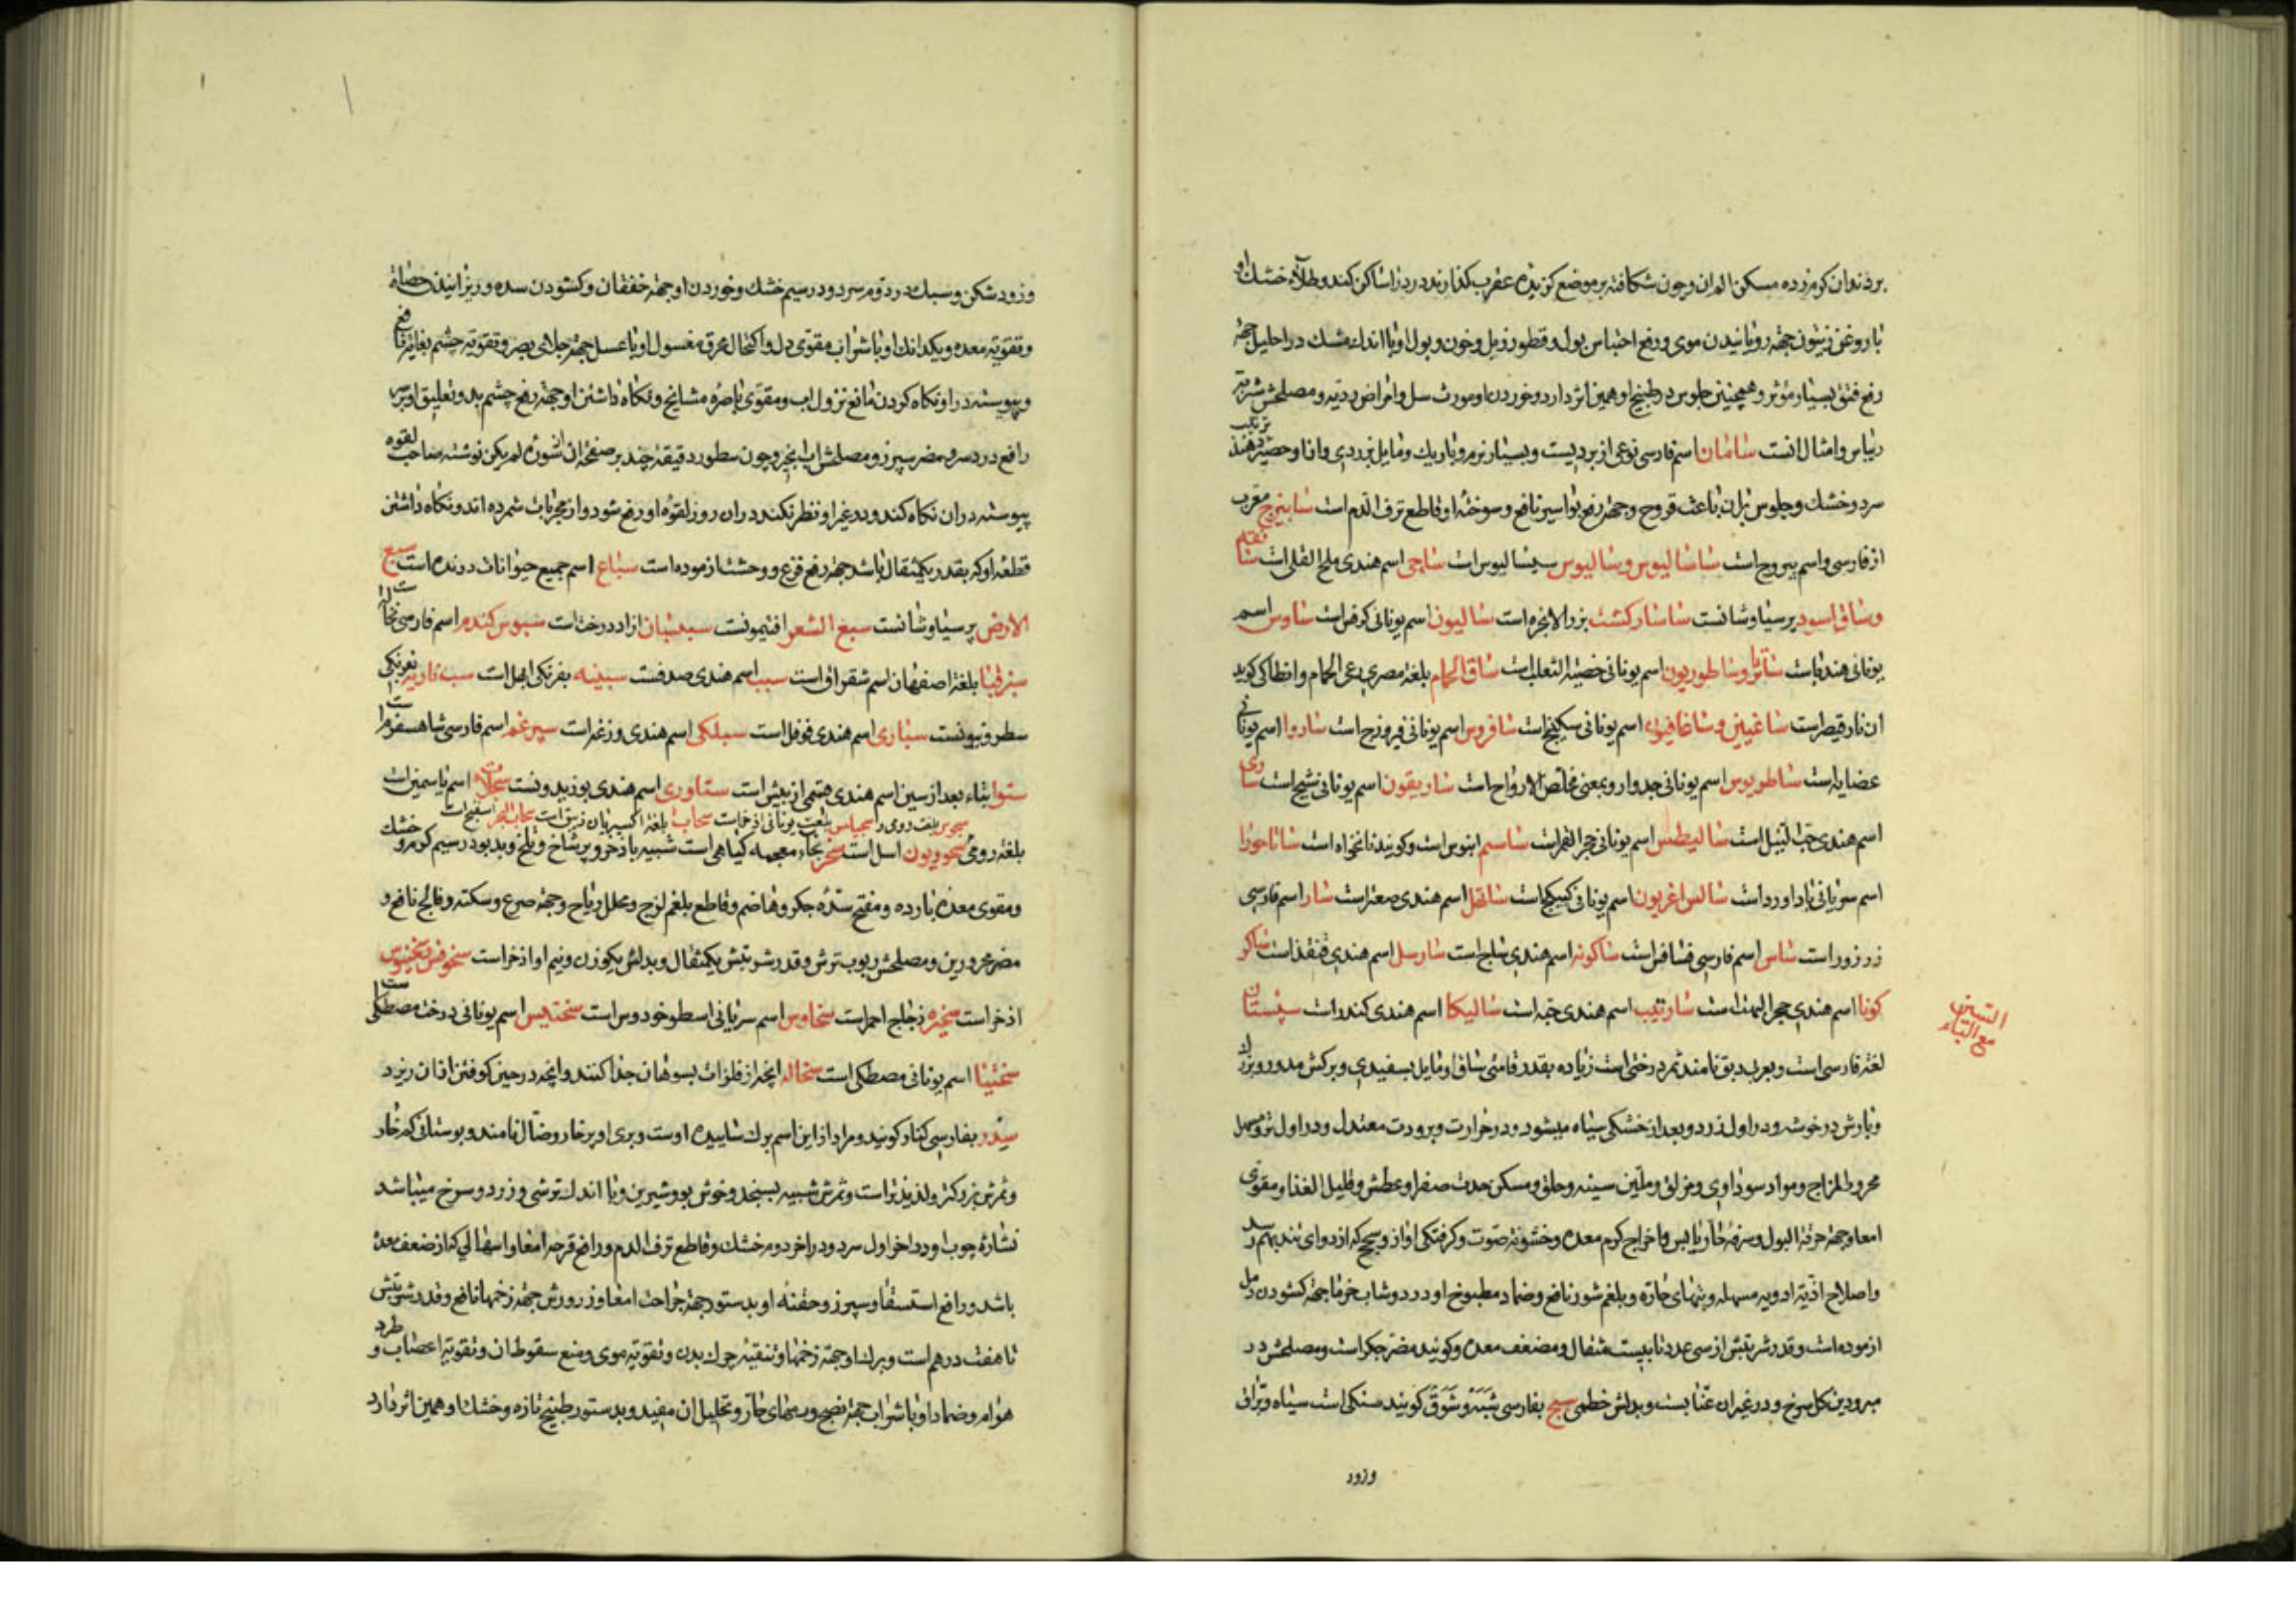 بردندان کرم زده مسکن الم ان و چون شکافته بر موضع کزیده عقرب کذارند درد را ساکن کند و طلاء خشک او
با روغن زیتون جهة رویانیدن موی و رفع احتباس بول و قطور زبل و خون و بول او با اندک مشک در احلیل جهة
رفع فتق بسیار مؤثر و همچنین جلوس در طبیخ او همین اثر دارد و خوردن او مورث سل و امراض ردیه و مصلحش شربة
ریباس و امثال انست سامان اسم فارسی نوعی از بردیست و بسیار نرم و باریک و مایل بزردی و از او حصیر
سرد و خشک و جلوس بران باعث قروح و جهة رفع بواسیر نافع و سوختهٔ او قاطع نزف الدم است سابیزج معرب
از فارسی و اسم یبروح است ساسالیوس و سالیوس سیسالیوس است ساجی اسم هندی ملح القلی است
و ساق اسود پرسیاوشانست ساسارکشت بزر الانجره است سالیون اسم یونانی کرفس است ساوس اسم
یونانی هندباست و ساطوریون اسم یونانی خصیة الثعلب است ساق الحمام بلغة مصری رعی الحمام و انطاکی کوید
ان نارقیصر است ساغیین و ساغافیون اسم یونانی سکبینج است سافروس اسم یونانی فیروزج است ساروا اسم یونانی
عضایه است ساطریوس اسم یونانی جدوار و بمعنی مخلص الارواح است ساریقون اسم یونانی شیح است
اسم هندی حب النیل است سالیطس اسم یونانی حجر القمر است ساسم ابنوس است و کویند نانخواه است
اسم سریانی باداورد است سالس اغریون اسم یونانی کبیکج است ساتهل اسم هندی صعتر است سار اسم فارسی
زرزور است ساس اسم فارسی فسافس است ساکونه اسم هندی ساج است سارسل اسم هندی قنفذ است
اسم هندی حجر البهت است اسم هندی حبه است سالیکا اسم هندی کندر است سپستان
السین مع الباء
لغة فارسی است و بعربی دبق نامند ثمر درختی است زیاده بقدر قامتی ساق او مایل بسفیدی و برکش مدور و بزرک
و بارش در خوشه و در اول زرد و بعد از خشکی سیاه میشود و در حرارت و برودت معتدل و در اول تر و مسهل
محرور المزاج و مواد سوداوی و مزلق و ملین سینه و حلق و مسکن حدت صفرا و عطش و قلیل الغذا و مقوی
امعا و جهة حرقة البول و سرفهٔ حار یابس و اخراج کرم معده و خشونة صوت و کرفتکی اواز و سحج که از دوای تند بهم رسد
و اصلاح اذیة ادویه مسهله و تبهای حاره و بلغم شور نافع و ضماد مطبوخ او در دوشاب خرما جهة کشودن دمل
ازموده است و قدر شربتش از سی عدد تا بیست مثقال و مضعف معده و کویند مضر جکر است و مصلحش در
مبرودین کل سرخ و در غیر ان عنابست و بدلش خطمی سبج بفارسی شبه و شوق کویند سنکی است سیاه و براق
وزود
وزود شکن و سبک در دوم سرد و در سیم خشک و خوردن او جهة خفقان و کشودن سده و ریزانیدن حصاة
و تقویة معده و یکدانک او با شراب مقوی دل و اکتحال محرق مغسول او با عسل جهة جلای بصر و تقویة چشم بغایة نافع
و پیوسته در او نکاه کردن مانع نزول اب و مقوی باصره مشایخ و نکاه داشتن او جهة رفع چشم بد و تعلیق او بر سر
رافع درد سر و مضر سپرز و مصلحش اب انجیر و چون سطور دقیقهٔ چند بر صفحهٔ ان سورهٔ لم یکن نوشته صاحب لقوه
پیوسته در ان نکاه کند و در غیر او نظر نکند در ان روز لقوهٔ او رفع شود و از مجربات شمرده اند و نکاه داشتن
قطعهٔ او که بقدر یکمثقال باشد جهة رفع فزع و وحشت ازموده است سباع اسم جمیع حیوانات درنده است سبع
الارض پرسیاوشانست سبع الشعر افتیمونست سبدسبان ازاد درخت است سبوس کندم اسم فارسی نخاله است
بلغة اصفهان اسم شقراق است سبب اسم هندی صدفست سبینه بفرنکی ابهل است
سطرونیونست سپاری اسم هندی فوفل است سبلکی اسم هندی وزغ است سپرغم اسم فارسی شاهسفرم است
ستوا بتاء بعد از سین اسم هندی قسمی از بیش است ستاوری اسم هندی بوزیدونست اسم یاسمین است
بلغة رومی اسل است سخبر بخاء معجمه کیاهی است شبیه باذخر و پرشاخ و تلخ و بدبو در سیم کرم و خشک
و مقوی معدهٔ بارده و مفتح سدهٔ جکر و هاضم و قاطع بلغم لزج و محلل ریاح و جهة صرع و سکته و فالج نافع و
مضر محرورین و مصلحش ربوب ترش و قدر شربتش یکمثقال و بدلش یکوزن و نیم او اذخر است
اذخر است زجاج احمر است سخاوس اسم سریانی اسطوخودوس است اسم یونانی درخت مصطکی است
سختینا اسم یونانی مصطکی است سخاله انچه از فلزات بسوهان جدا کنند و انچه در حین کوفتن از ان ریزد
سدر بفارسی کنار کویند و مراد از این اسم برک ساییده اوست و بری او پرخار و ضال نامند و بوستانی کم خار
و ثمرش بزرکتر و لذیذتر است و ثمرش شبیه بسنجد و خوش بو و شیرین و با اندک ترشی و زرد و سرخ میباشد
نشارهٔ چوب او در اخر اول سرد و در اخر دوم خشک و قاطع نزف الدم و رافع قرحهٔ امعا و اسهالی که از ضعف معده
باشد و رافع استسقا و سپرز و حقنهٔ او بدستور جهة جراحت امعا و زرورش جهة زخمها نافع و قدر شربتش
تا هفت درهم است و برک او جهة زخمها و تنقیهٔ چرک بدن و تقویة موی و منع سقوط ان و تقویة اعصاب و طرد
هوام و ضماد او با شراب جهة نضج ورمهای حار و تحلیل ان مفید و بدستور طبیخ تازه و خشک او همین اثر دارد